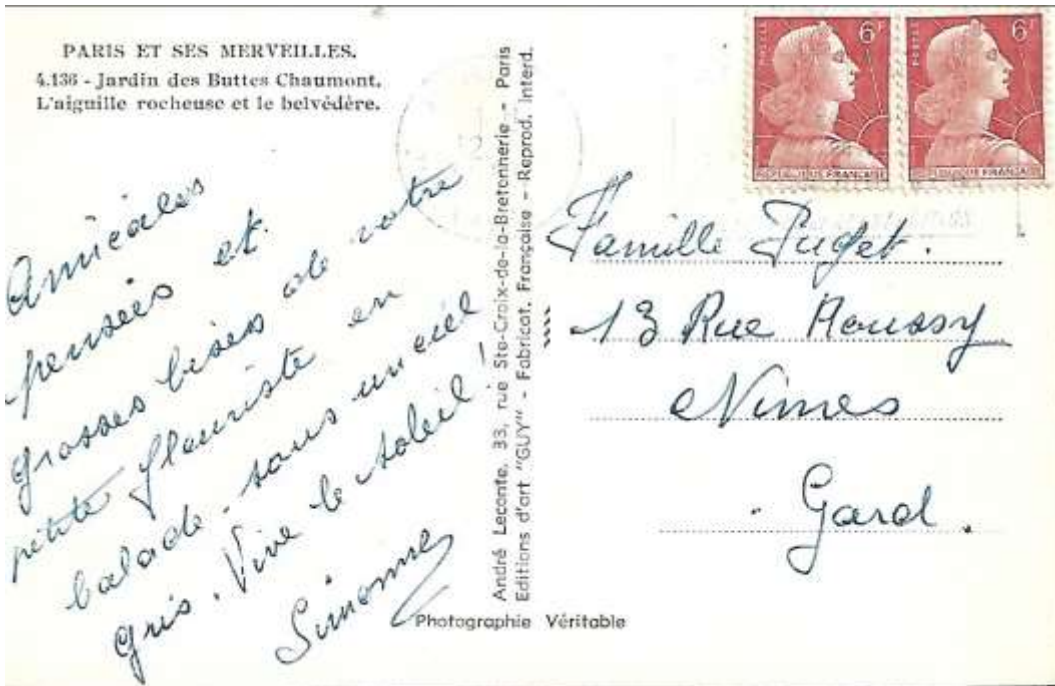 PARIS ET SES MERVEILLES.
4.136 - Jardin des Buttes Chaumont.
L'aiguille rocheuse et le belvédère.
Amicales
pensées et
grosses bises de votre
petite fleuriste en
balade sous un ciel
gris. Vive le soleil !
Simonne
André Leconte, 33, rue Ste-Croix-de-la-Bretonnerie - Paris
Editions d'art "GUY" - Fabricat. Française - Reprod. Interd.
Photographie Véritable
6F
POSTES
REPUBLIQUE FRANÇAISE
6F
POSTES
REPUBLIQUE FRANÇAISE
Famille Puget.
13 Rue Roussy
Nimes
Gard.